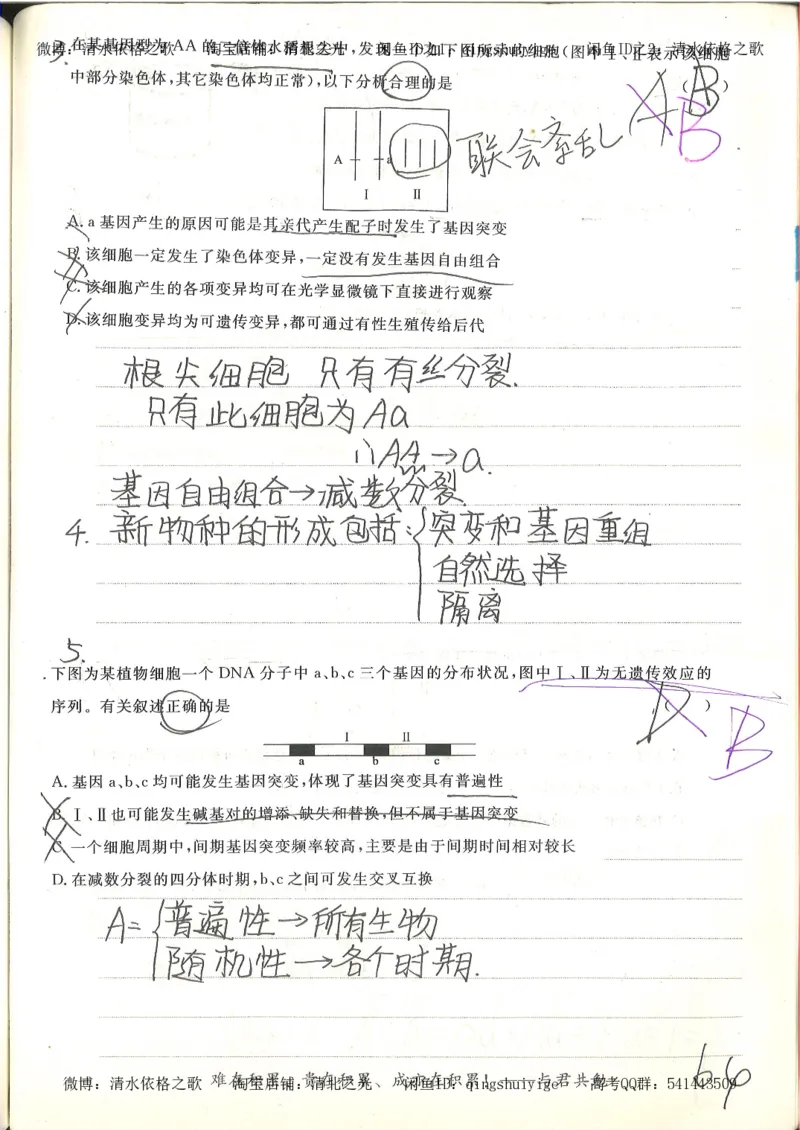 微博：清水依格之歌 淘宝店铺：清北之光 闲鱼ID之2：清水依格之歌
3. 在某基因型为AA的二倍体水稻根尖中，发现一个如下图所示的细胞（图中Ⅰ、Ⅱ表示该细胞
中部分染色体，其它染色体均正常），以下分析合理的是 （ ）
AB
B
联会紊乱
A a
Ⅰ Ⅱ
A. a基因产生的原因可能是其亲代产生配子时发生了基因突变
B. 该细胞一定发生了染色体变异，一定没有发生基因自由组合
C. 该细胞产生的各项变异均可在光学显微镜下直接进行观察
D. 该细胞变异均为可遗传变异，都可通过有性生殖传给后代
根尖细胞 只有有丝分裂.
只有此细胞为Aa
AA→a.
基因自由组合→减数分裂.
4. 新物种的形成包括：突变和基因重组
自然选择
隔离
5.
下图为某植物细胞一个DNA分子中a、b、c三个基因的分布状况，图中Ⅰ、Ⅱ为无遗传效应的
序列。有关叙述正确的是 （ ）
D
B
Ⅰ Ⅱ
a b c
A. 基因a、b、c均可能发生基因突变，体现了基因突变具有普遍性
B. Ⅰ、Ⅱ也可能发生碱基对的增添、缺失和替换，但不属于基因突变
C. 一个细胞周期中，间期基因突变频率较高，主要是由于间期时间相对较长
D. 在减数分裂的四分体时期，b、c之间可发生交叉互换
A= 普遍性→所有生物
随机性→各个时期.
微博：清水依格之歌 淘宝店铺：清北之光 闲鱼ID：qingshuiyige 高考QQ群：541443509
难在积累、贵在积累、成亦在积累！——与君共勉